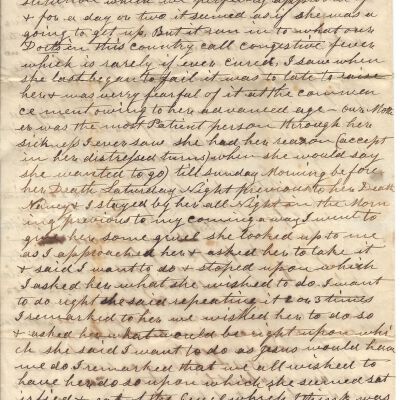 which we
& for a day or two it seemed as if she was a
going to get up. But it run in to what our
Docts in this country call congestive fever
which is rarely if ever cured. I saw when
she last began to fail it was to late to raise
her & was verry fearful of it at the commen
cement owing to her advanced age - our Moth
er was the most Patient person through her
sickness I ever saw she had her reason (accept
in her distressed turns) when she would say
she wanted to go) till Sunday Morning before
her Death Saturday Night previous to her Death
Nancy & I stayed by her all Night on the Morn
ing previous to my coming away I went to
give her some gruel she looked up to me
as I approached her & asked her to take it
& said I want to do & stoped upon which
I asked her what she wished to do. I want
to do right she said repeating it 2 or 3 times
I remarked to her we wished her to do so
& asked her what would be right upon whi
ch she said I want to do as Jesus would have
me do I remarked that we all wished to
have her do so upon which she seemed sat
isfied & eat of the Gruel which I think was